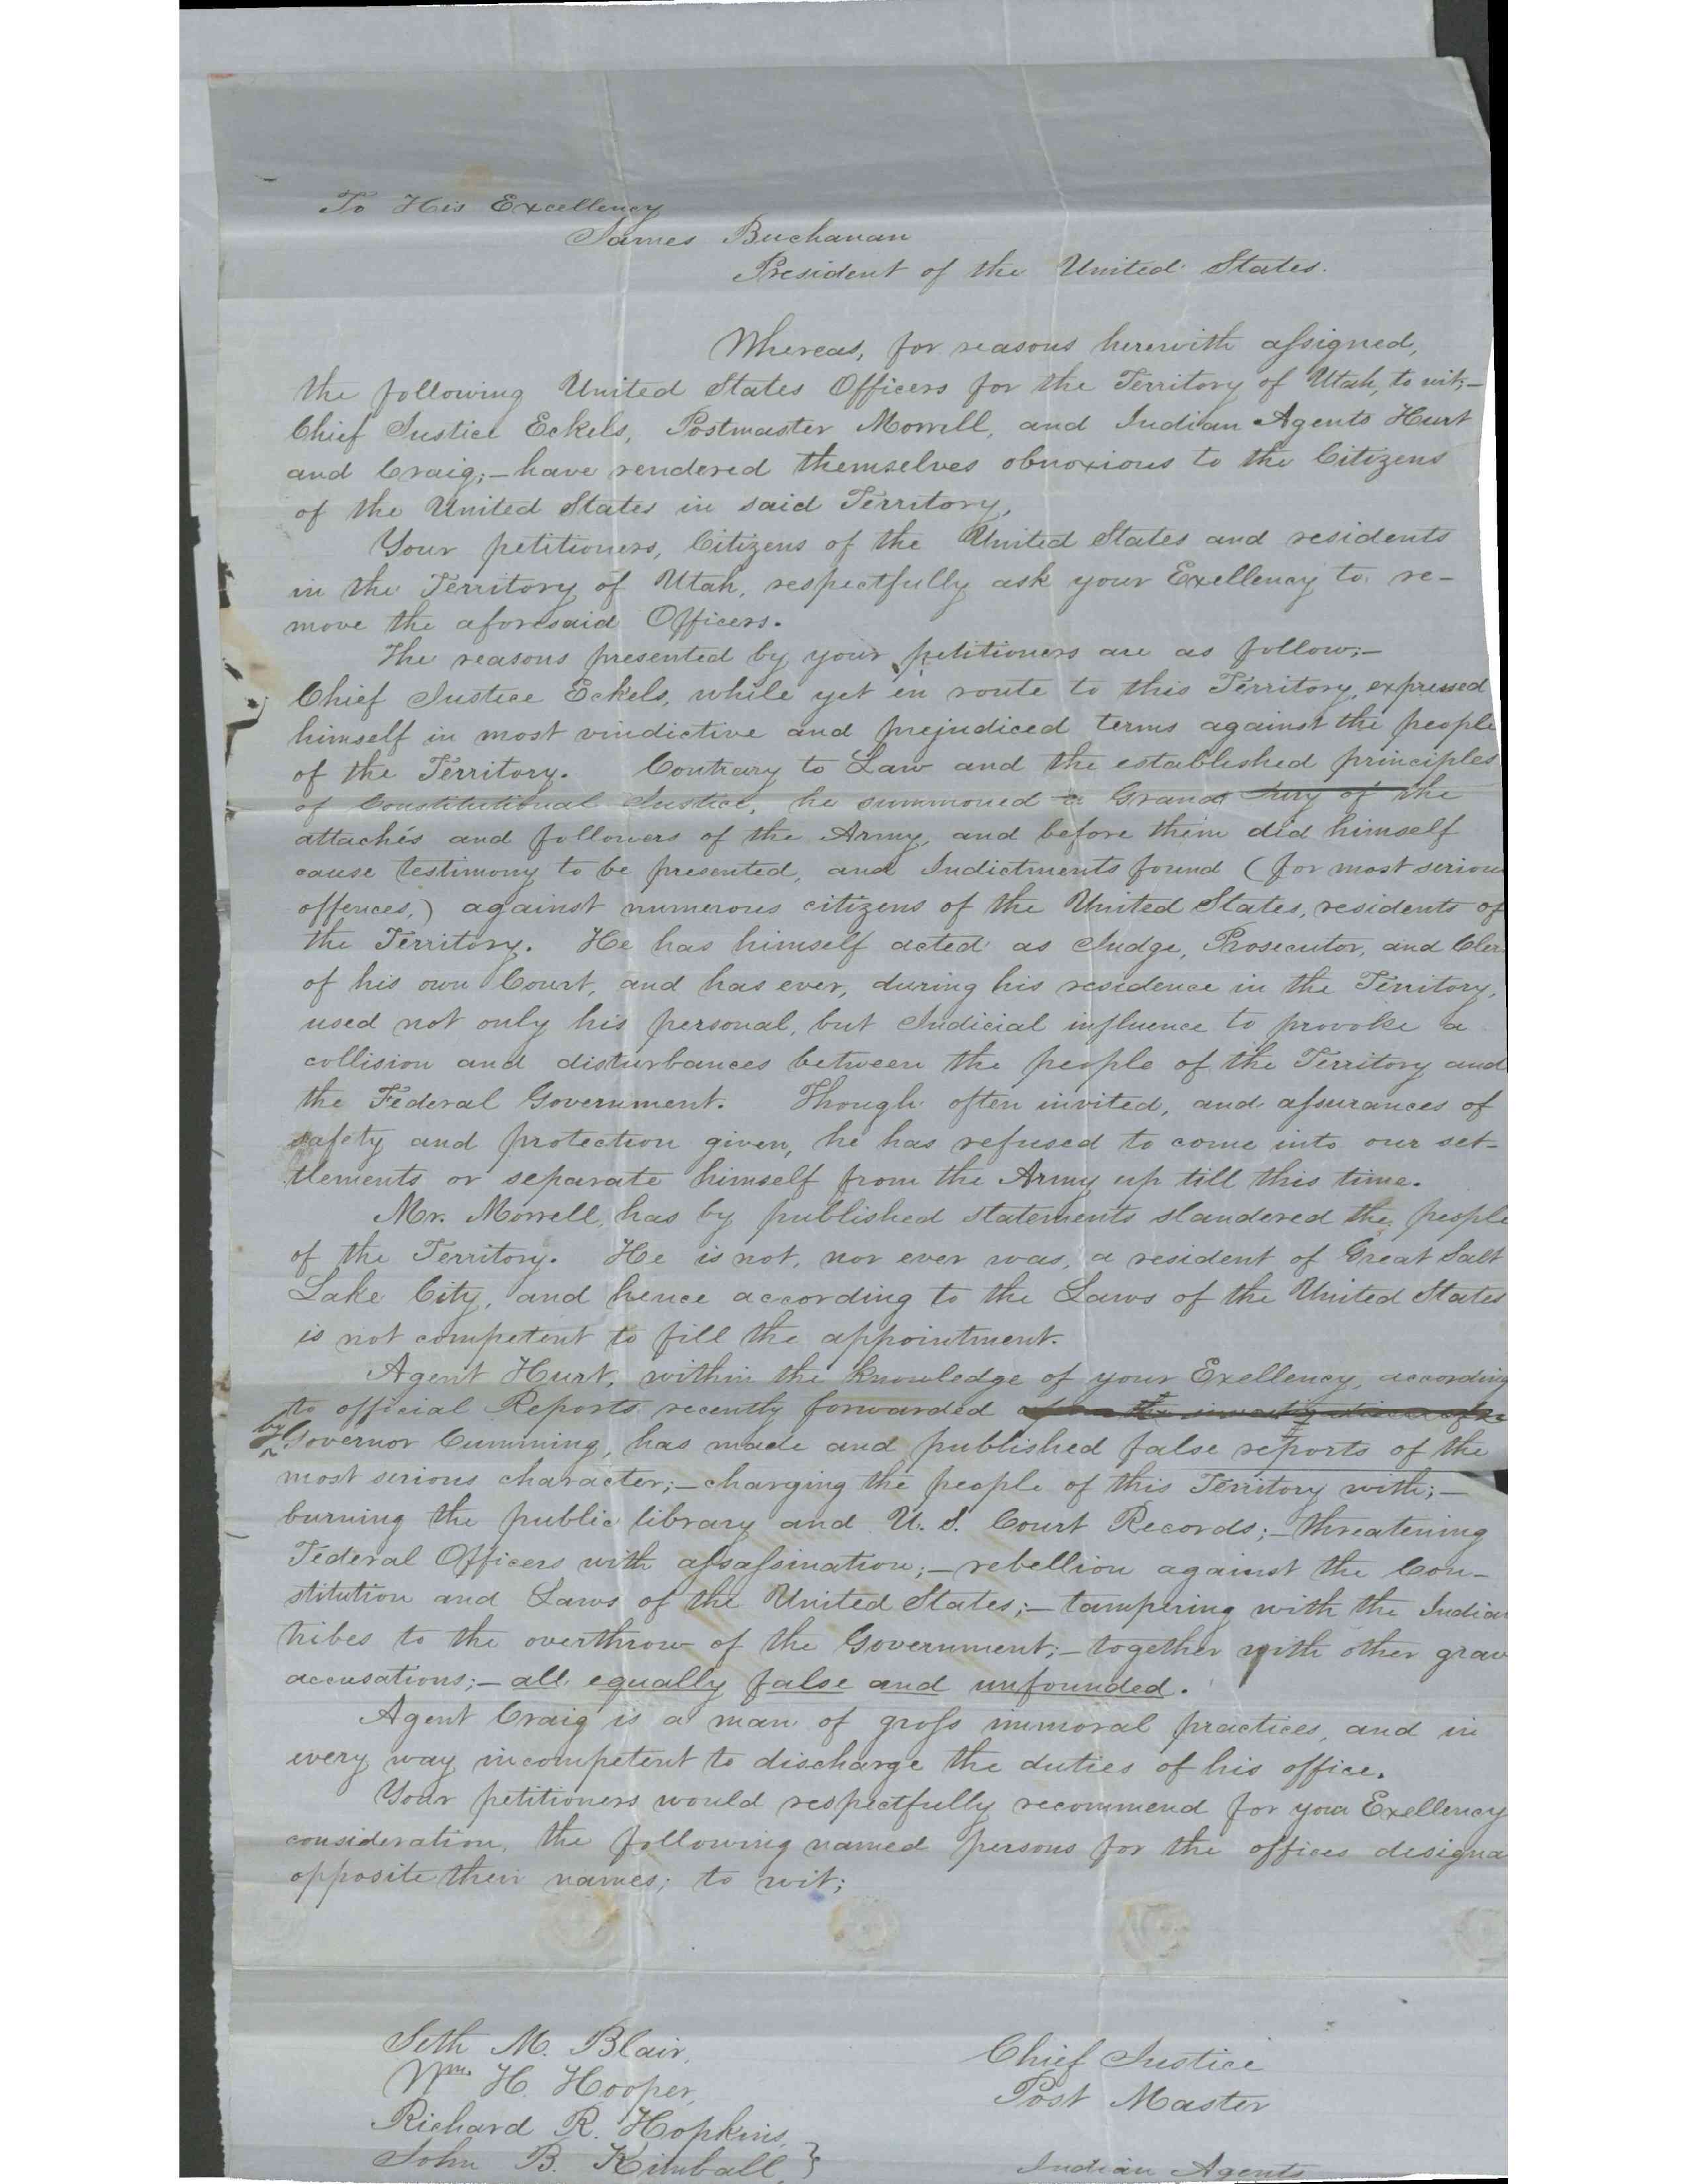 To His Excellency
James Buchanan
President of the United States.
Whereas, for reasons herewith assigned,
the following United States Officers for the Territory of Utah, to wit;–
Chief Justice Eckels, Postmaster Morrell, and Indian Agents Hurt
and Craig;– have rendered themselves obnoxious to the Citizens
of the United States in said Territory,
Your petitioners, Citizens of the United States and residents
in the Territory of Utah, respectfully ask your Exellency to re-
move the aforesaid Officers.
The reasons presented by your petitioners are as follow;–
Chief Justice Eckels, while yet en route to this Territory, expressed
himself in most vindictive and prejudiced terms against the people
of the Territory. Contrary to Law and the established principles
of Constitutional Justice, he summoned a Grand Jury of the
attachés and followers of the Army, and before them did himself
cause testimony to be presented, and Indictments found (for most seriou
offences,) against numerous citizens of the United States, residents of
the Territory. He has himself acted as Judge, Prosecutor, and Cler
of his own Court, and has ever, during his residence in the Territory,
used not only his personal, but Judicial influence to provoke a
collision and disturbances between the people of the Territory and
the Federal Government. Though often invited, and assurances of
safety and protection given, he has refused to come into our set-
tlements or separate himself from the Army up till this time.
Mr. Morrell, has by published statements slandered the people
of the Territory. He is not, nor ever was, a resident of Great Salt
Lake City, and hence according to the Laws of the United States
is not competent to fill the appointment.
Agent Hurt, within the knowledge of your Exellency, according
to official Reports recently forwarded
by Governor Cumming, has made and published false reports of the
most serious character;– charging the people of this Territory with;–
burning the public library and U. S. Court Records;– threatening
Federal Officers with assassination;– rebellion against the Con-
stitution and Laws of the United States;– tampering with the Indian
tribes to the overthrow of the Government;– together with other grav
accusations;– all equally false and unfounded.
Agent Craig is a man of gross immoral practices, and in
every way incompetent to discharge the duties of his office.
Your petitioners would respectfully recommend for your Exellency
consideration, the following named persons for the offices designa
opposite their names; to wit;
Seth M. Blair, Chief Justice
Wm. H. Hooper, Post Master
Richard R. Hopkins,
John B. Kimball, } Indian Agents